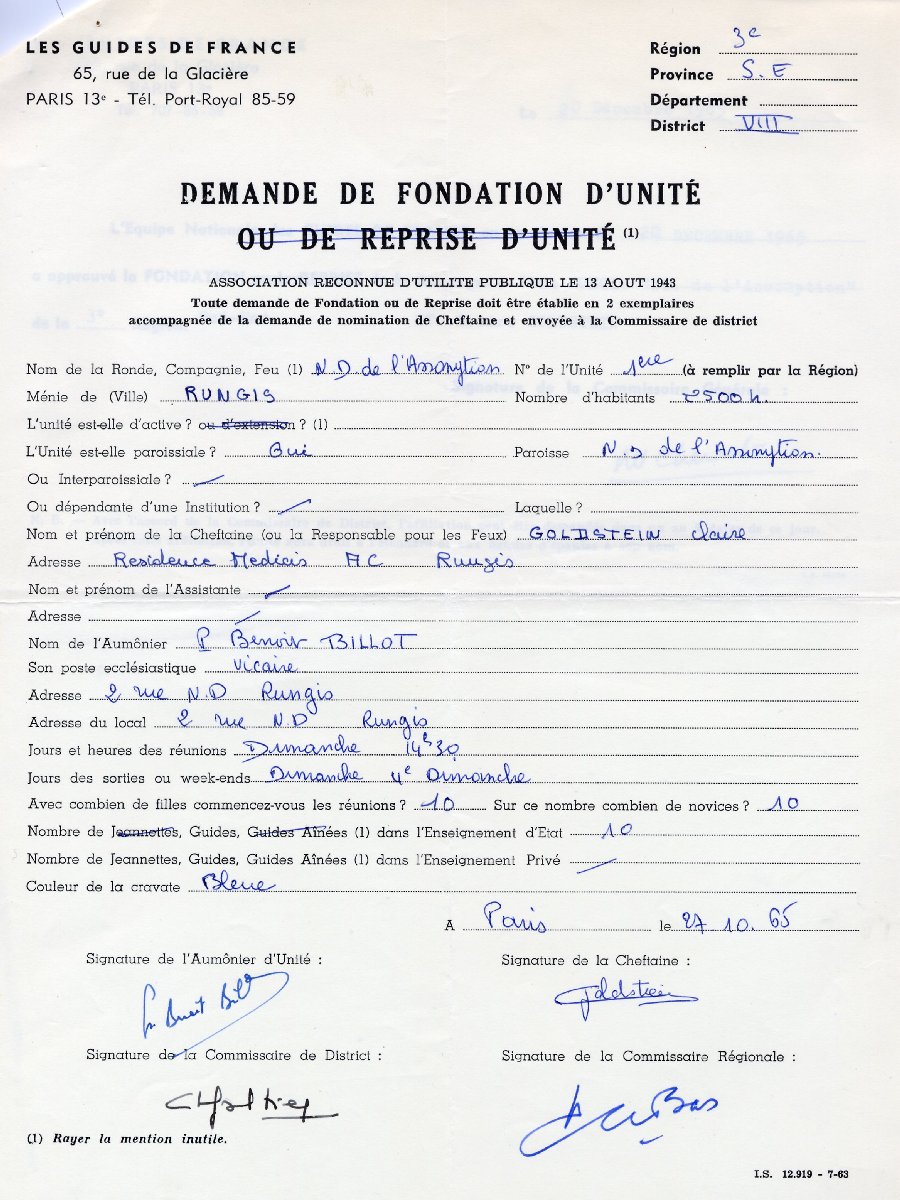 LES GUIDES DE FRANCE
65, rue de la Glacière
PARIS 13e - Tél. Port-Royal 85-59
Région 3e
Province S.E
Département
District VIII
DEMANDE DE FONDATION D'UNITÉ
OU DE REPRISE D'UNITÉ (1)
ASSOCIATION RECONNUE D'UTILITE PUBLIQUE LE 13 AOUT 1943
Toute demande de Fondation ou de Reprise doit être établie en 2 exemplaires
accompagnée de la demande de nomination de Cheftaine et envoyée à la Commissaire de district
Nom de la Ronde, Compagnie, Feu (1) N D de l'Assomption N° de l'Unité 1ere (à remplir par la Région)
Ménie de (Ville) RUNGIS Nombre d'habitants 2500 h.
L'unité est-elle d'active ? ou d'extension ? (1)
L'Unité est-elle paroissiale ? Oui Paroisse N.D de l'Assomption.
Ou Interparoissiale ?
Ou dépendante d'une Institution ? Laquelle ?
Nom et prénom de la Cheftaine (ou la Responsable pour les Feux) GOLDSTEIN Claire
Adresse Residence Medicis AC Rungis
Nom et prénom de l'Assistante
Adresse
Nom de l'Aumônier P Benoit BILLOT
Son poste ecclésiastique Vicaire
Adresse 2 rue N.D Rungis
Adresse du local 2 rue N.D Rungis
Jours et heures des réunions Dimanche 14h30
Jours des sorties ou week-ends Dimanche 4e Dimanche
Avec combien de filles commencez-vous les réunions ? 10 Sur ce nombre combien de novices ? 10
Nombre de Jeannettes, Guides, Guides Aînées (1) dans l'Enseignement d'Etat 10
Nombre de Jeannettes, Guides, Guides Aînées (1) dans l'Enseignement Privé
Couleur de la cravate Bleue
A Paris le 27.10.65
Signature de l'Aumônier d'Unité :
Signature de la Cheftaine :
Goldstein
Signature de la Commissaire de District :
Signature de la Commissaire Régionale :
(1) Rayer la mention inutile.
I.S. 12.919 - 7-63